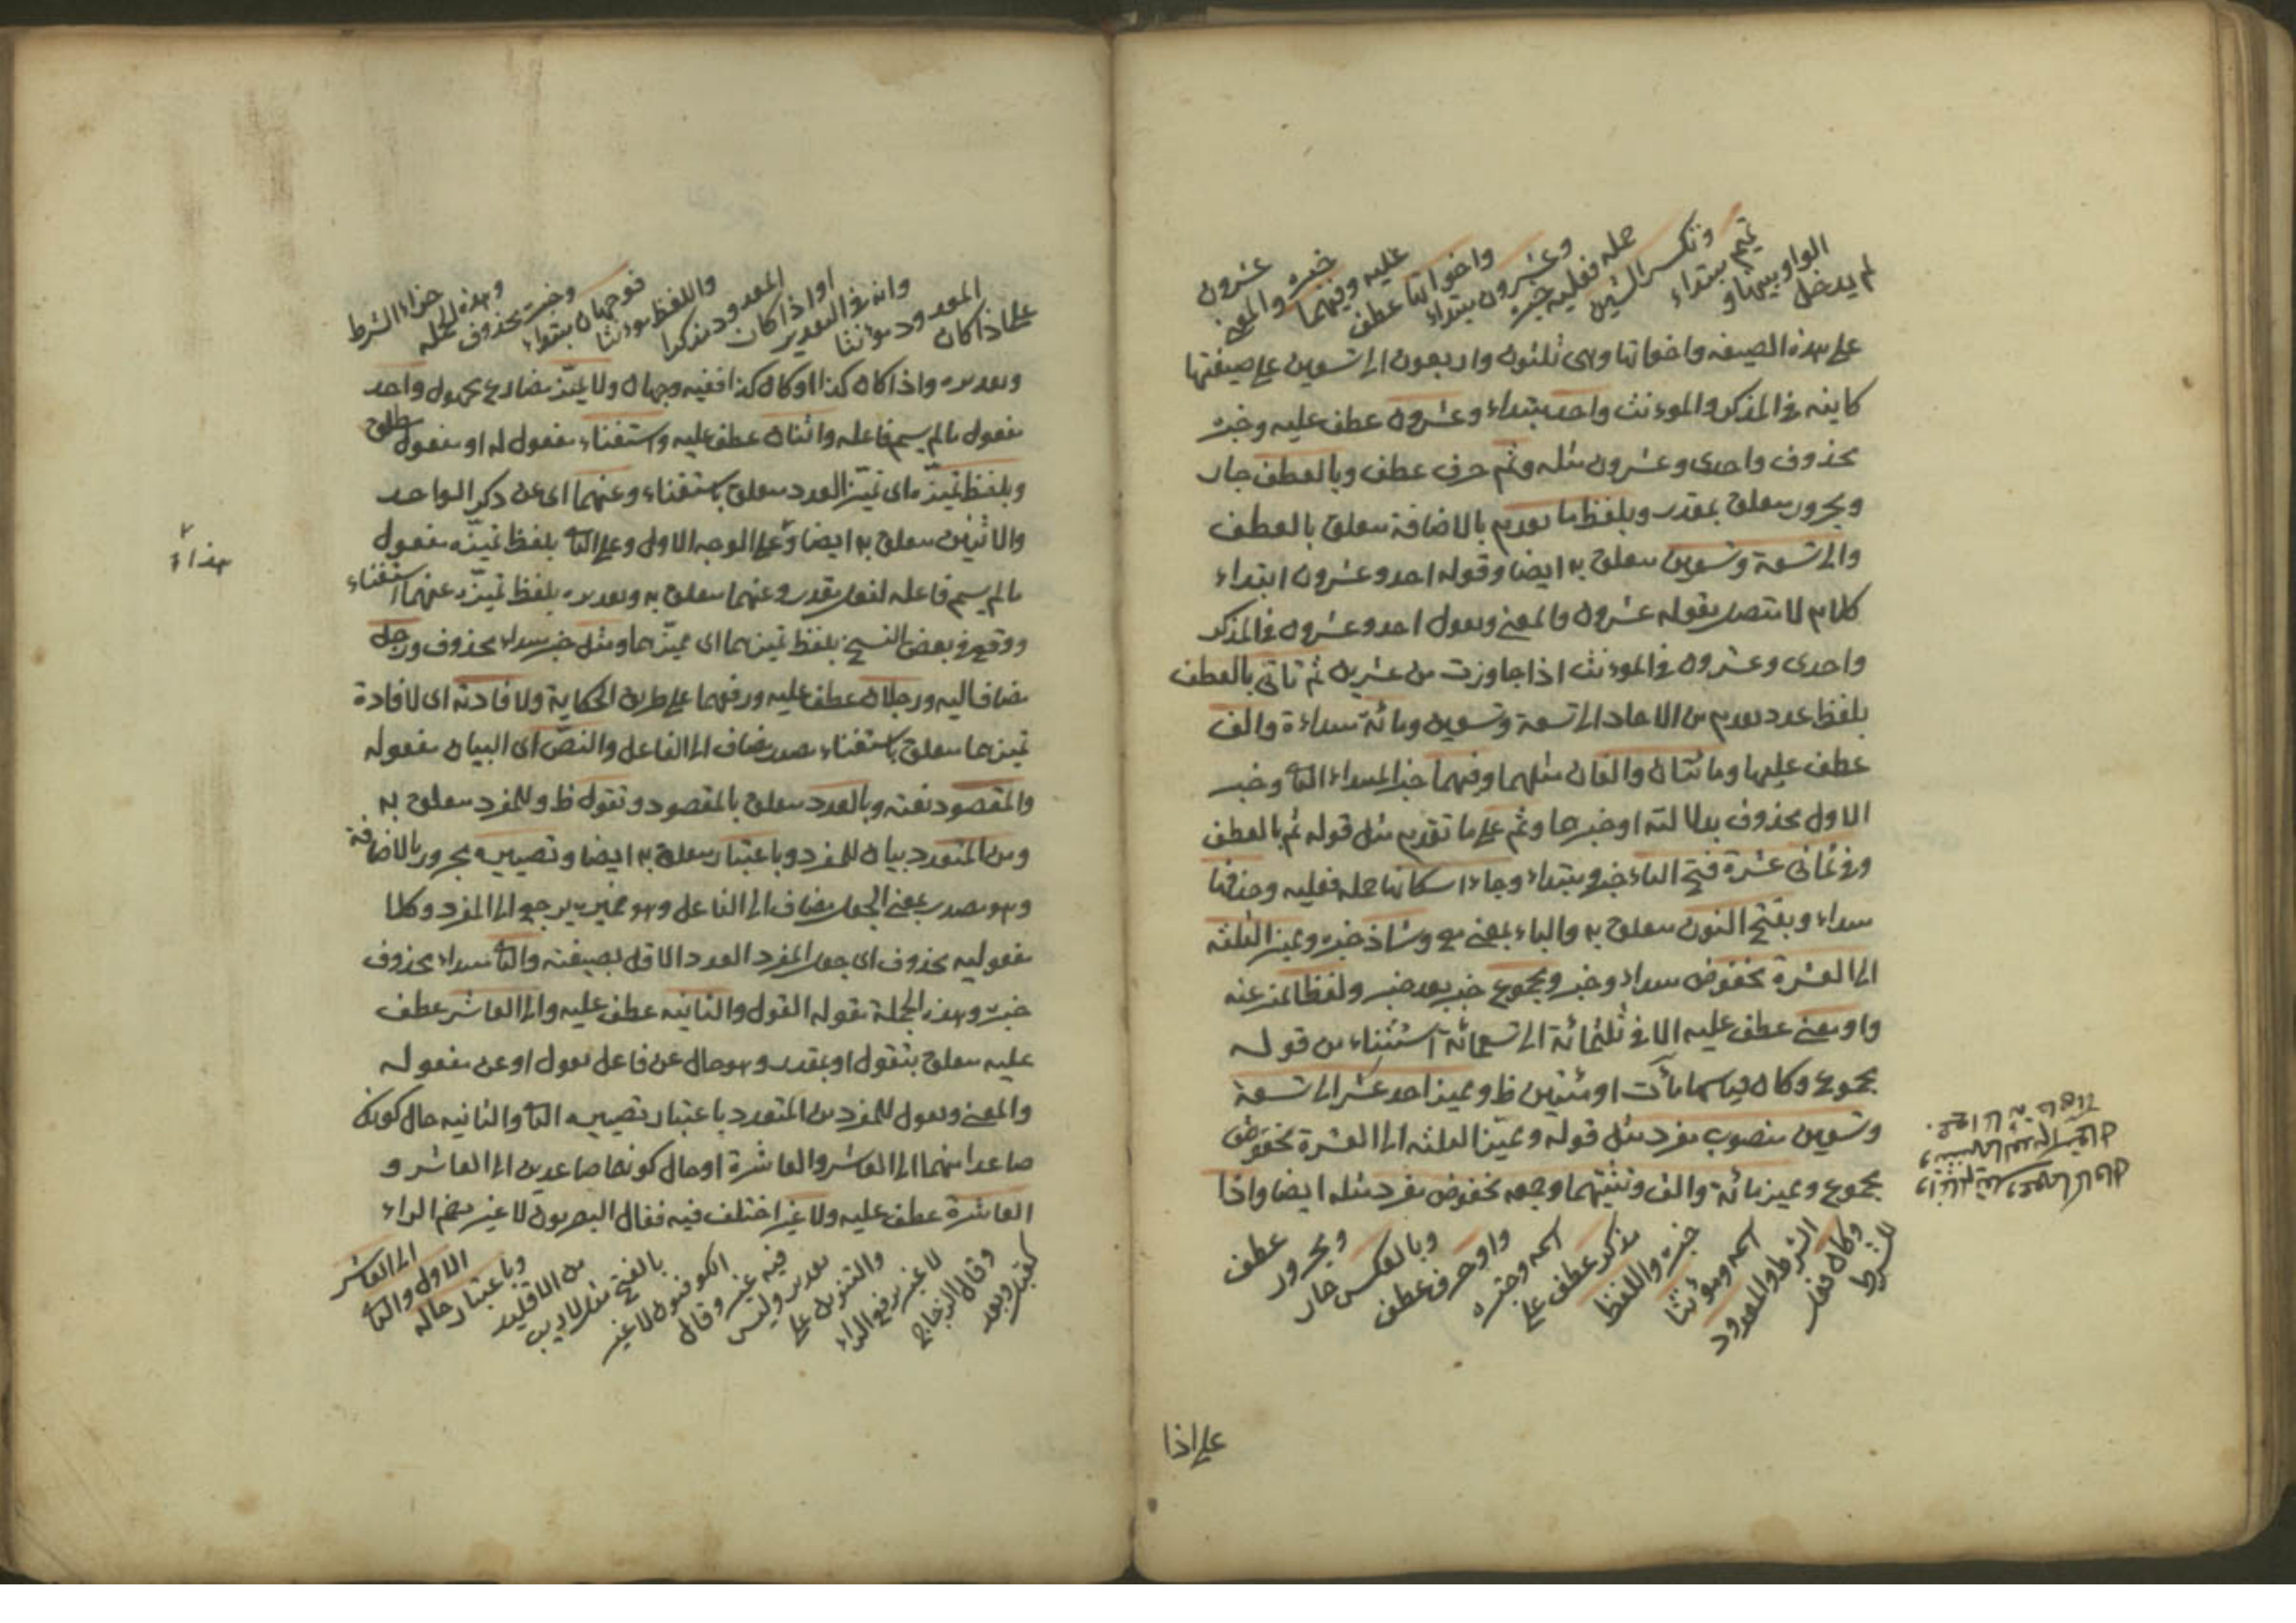 لم يدخل
الواو بينها و
تميم مبتداء
وتكسر الشين
جمله فعليه خبره
وعشرون مبتداء
واخواتها عطف
عليه وفيهما
خبره والمعنى
عشرون
على هذه الصيغه واخواتها وهى ثلثون واربعون الى تسعين على صيغتها
كاينه فى المذكر والموءنث واحد مبتداء وعشرون عطف عليه وخبره
محذوف واحدى وعشرون مثله وثم حرف عطف وبالعطف جار
ومجرور متعلق بمقدر وبلفظ ما تقدم بالاضافة متعلق بالعطف
والى تسعة وتسعين متعلق به ايضا وقوله احد وعشرون ابتداء
كلام لا متصل بقوله عشرون والمعنى وتقول احد وعشرون فى المذكر
واحدى وعشرون فى الموءنث اذا جاوزت من عشرين ثم تاتى بالعطف
بلفظ عدد تقدم من الاحاد الى تسعة وتسعين ومائة مبتداء والف
عطف عليها ومائتان والفان مثلهما وفيهما خبر المبتداء الثانى وخبر
الاول محذوف بدلالته او خبرها وثم على ما تقدم مثل قوله ثم بالعطف
وفى ثمانى عشرة فتح الياء خبر ومبتداء وجاء اسكانها جمله فعليه وحذفها
مبتداء وبفتح النون متعلق به والباء بمعنى مع وشاذ خبره ومميز الثلثه
الى العشرة مخفوض مبتداء وخبر ومجموع خبر بعد خبر ولفظا تميز عنه
او معنى عطف عليه الا فى ثلثمائة الى تسعمائة استثناء من قوله
مجموع وكان قياسها مآت او مئين ظ ومميز احد عشر الى تسعة
وتسعين منصوب مفرد مثل قوله ومميز الثلثه الى العشرة مخفوض
مجموع ومميز مائة والف وتثنيتهما وجمعه مخفوض مفرد مثله ايضا واذا
للشرط
وكان فعل
الشرط والمعدود
اسمه وموءنثا
خبره واللفظ
مذكر عطف على
اسمه وخبره
واو حرف عطف
وبالعكس جار
ومجرور
عطف
على اذا
على اذا كان
المعدود موءنثا
وانه فى التقدير
او اذا كان
المعدود مذكرا
واللفظ موءنثا
فوجهان مبتداء
وخبره محذوف
وهذه الجمله
جزاء الشرط
وتقديره واذا كان كذا او كان كذا ففيه وجهان ولا يميز مضارع مجهول واحد
مفعول مالم يسم فاعله واثنان عطف عليه واستغناء مفعول له او مفعول مطلق
وبلفظ تميزه اى تميز العدد متعلق باستغناء وعنهما اى عن ذكر الواحد
والاثنين متعلق به ايضا وعلى الوجه الاول وعلى الثانى بلفظ تميزه مفعول
مالم يسم فاعله لفعل مقدر وعنهما متعلق به وتقديره بلفظ تميزه عنهما استغناء
ووقع فى بعض النسخ بلفظ تميزهما اى مميزهما ومثل خبر مبتداء محذوف ورجل
مضاف اليه ورجلان عطف عليه ورفعهما على طريق الحكاية ولافادته اى لافادة
تميزهما متعلق باستغناء مصدر مضاف الى الفاعل والنص اى البيان مفعوله
والمقصود نعته وبالعدد متعلق بالمقصود وتقول ظ وللمفرد متعلق به
ومن المتعدد بيان للمفرد وباعتبار متعلق به ايضا وتصييره مجرور بالاضافة
وهو مصدر بمعنى الجعل مضاف الى الفاعل وهو ضمير يرجع الى المفرد وكلا
مفعوليه محذوف اى جعل المفرد العدد الاقل بصيغته والثانى مبتداء محذوف
خبره وهذه الجملة مقوله القول والثانيه عطف عليه والى العاشر عطف
عليه متعلق بتقول او بمقدر وهو حال عن فاعل تقول او عن مفعوله
والمعنى وتقول للمفرد من المتعدد باعتبار تصييره الثانى والثانيه حال كونك
صاعدا منهما الى العاشر والعاشرة او حال كونهما صاعدين الى العاشر و
العاشرة عطف عليه ولا غير اختلف فيه فقال البصريون لا غير بضم الراء
كقبل وبعد
وقال الزجاج
لا غير برفع الراء
والتنوين على
تقدير وليس
فيه غير وقال
الكوفيون لا غير
بالفتح مثل لاريب
من الاقليد
وباعتبار حاله
الاول والثانى
الى العاشر